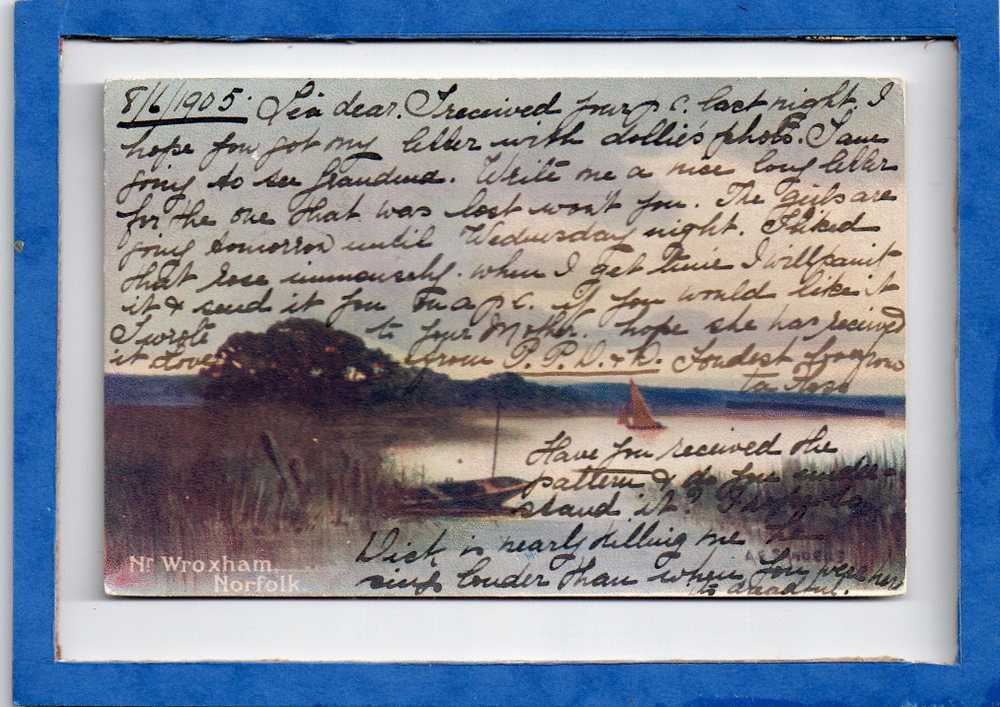 8/6/1905. dear. I received your p.c. last night. I
hope you got my letter with dollie's photo. I am
going to see Grandma. Write me a nice long letter
for the one that was lost won't you. The girls are
going tomorrow until Wednesday night. I liked
that rose immensely. when I get time I will paint
it & send it you on a p.c. if you would like it
I wrote to your Mother. hope she has received
it Love from P. P. D. & D. Fondest love from
Have you received the
pattern & do you under-
stand it?
Dick is nearly killing me
sing louder than when you were here
is dreadful.
Nr Wroxham,
Norfolk